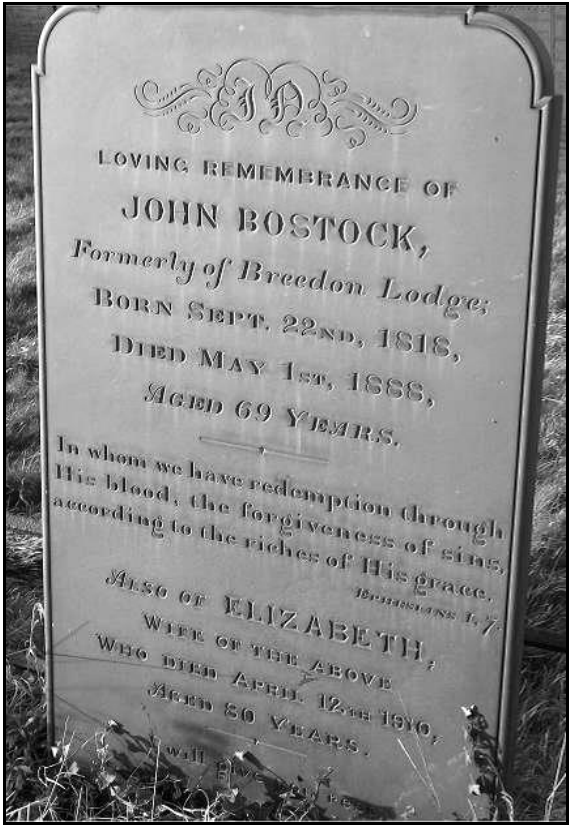 IN
LOVING REMEMBRANCE OF
JOHN BOSTOCK,
Formerly of Breedon Lodge;
BORN SEPT. 22ND, 1818,
DIED MAY 1ST, 1888,
AGED 69 YEARS.
In whom we have redemption through
His blood, the forgiveness of sins,
according to the riches of His grace.
EPHESIANS I, 7.
ALSO OF ELIZABETH,
WIFE OF THE ABOVE
WHO DIED APRIL 12TH 1910,
AGED 80 YEARS.
will give